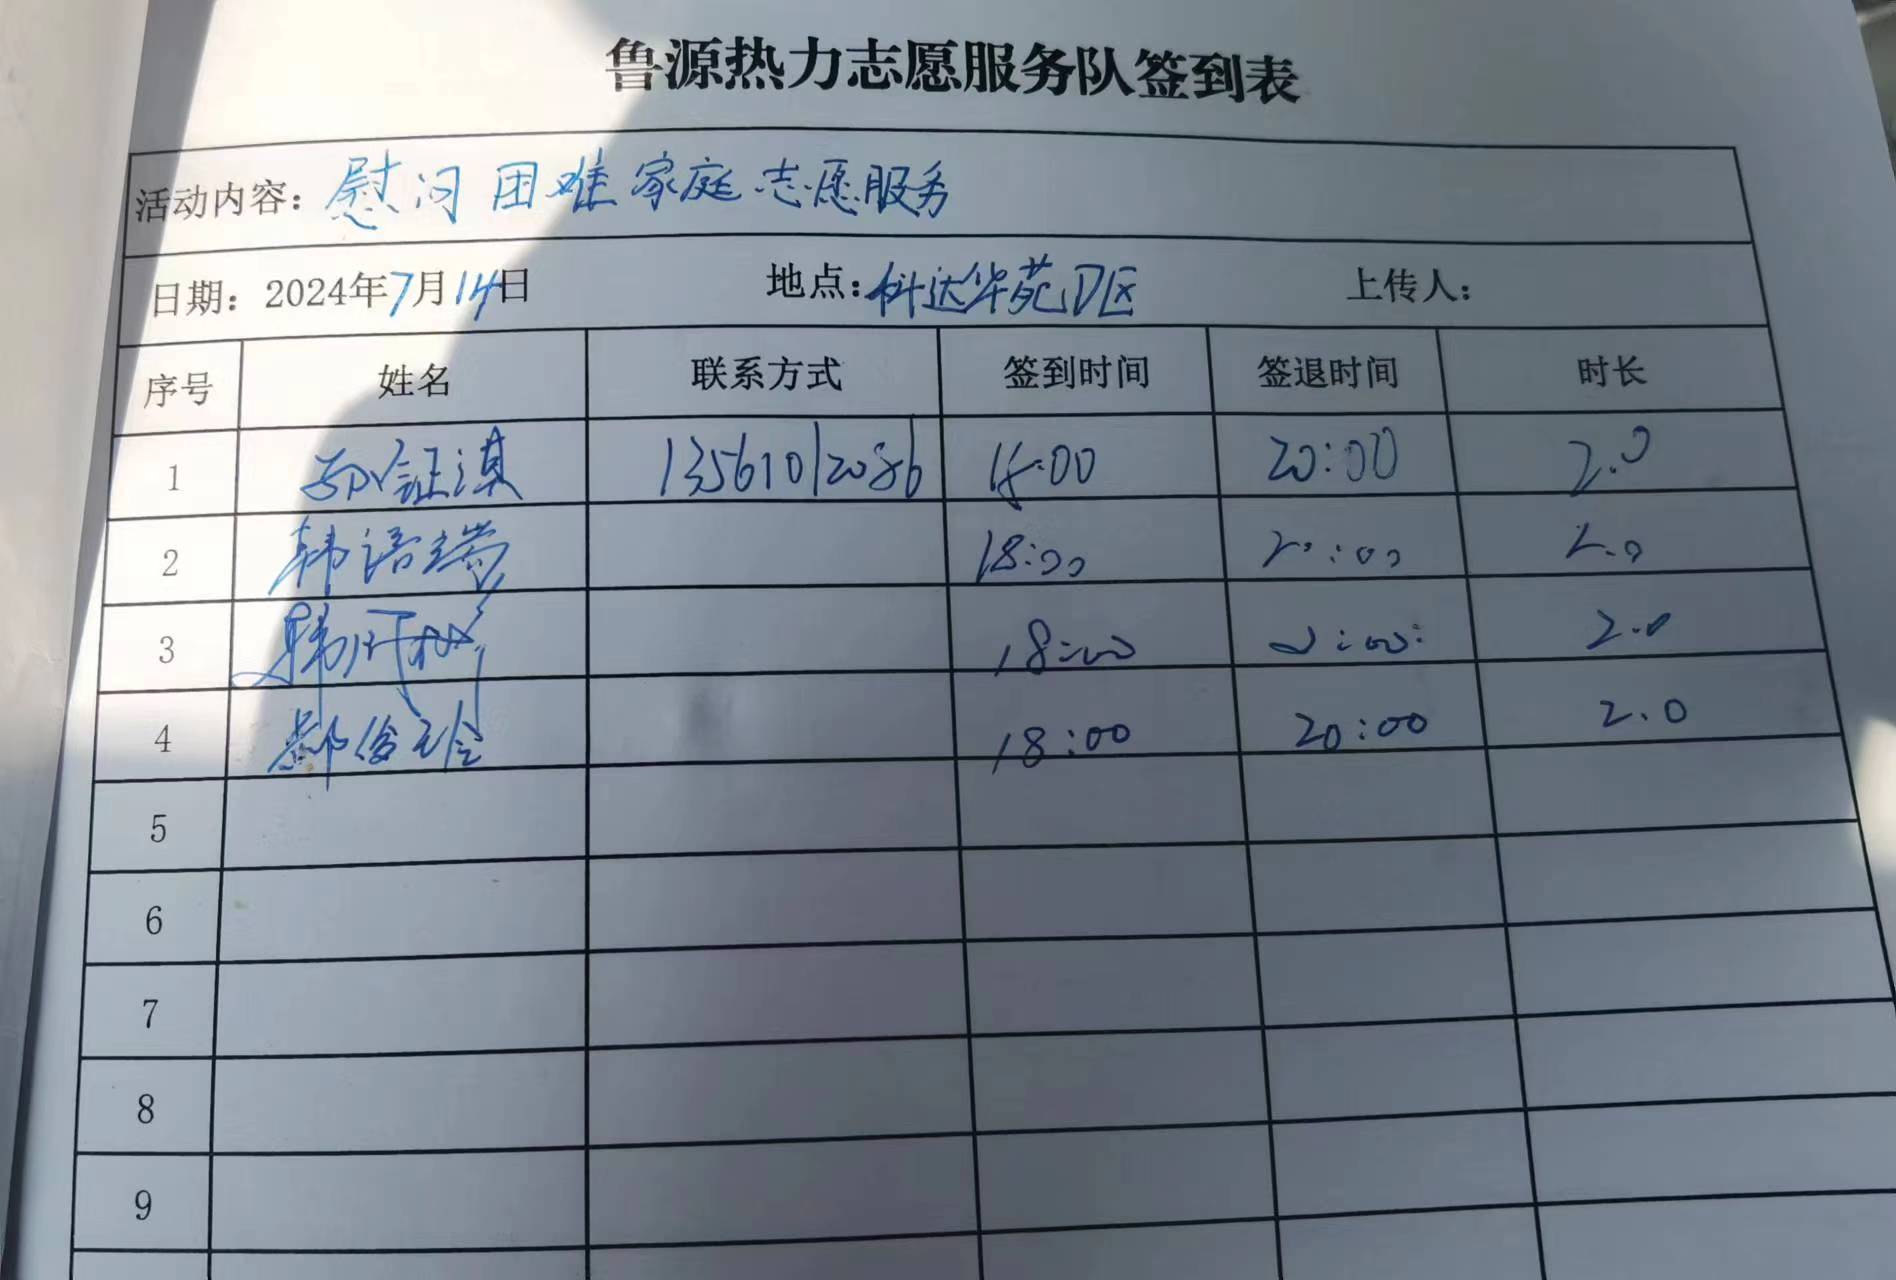 鲁源热力志愿服务队签到表
活动内容: 慰问困难家庭志愿服务
日期: 2024年7月14日 地点: 科达华苑D区 上传人:
序号 姓名 联系方式 签到时间 签退时间 时长
1 证淇 13561012086 18:00 20:00 2.0
2 韩语端 18:00 20:00 2.0
3 韩 18:00 20:00: 2.0
4 俊玲 18:00 20:00 2.0
5
6
7
8
9